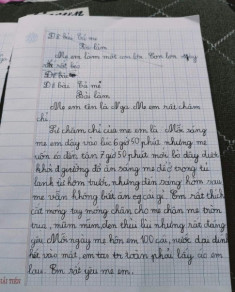 Đề bài: Tả mẹ
Bài làm
Mẹ em
Đề bài
Đề bài: Tả mẹ
Bài làm
Mẹ em tên là Nga. Mẹ em rất chăm
chỉ.
Sự chăm chỉ của mẹ em là: Mỗi sáng
mẹ em dậy vào lúc 6 giờ 50 phút nhưng mẹ
uốn éo đến tận 7 giờ 50 phút mới bò dậy dưới
khỏi giường đồ ăn sáng mẹ để trong tủ
lạnh từ hôm trước, nhưng đến sáng hôm sau
mẹ vẫn không biết ăn cái gì. Em rất thích
cắt móng tay móng chân cho mẹ chân mẹ tròn
trịa, mũm mĩm, đen thui lùi nhưng rất đáng
yêu. Mỗi ngày mẹ hôn em 100 cái, nước dãi dính
hết vào mặt, em tao tn toàn phải lấy áo em
lau. Em rất yêu mẹ em.